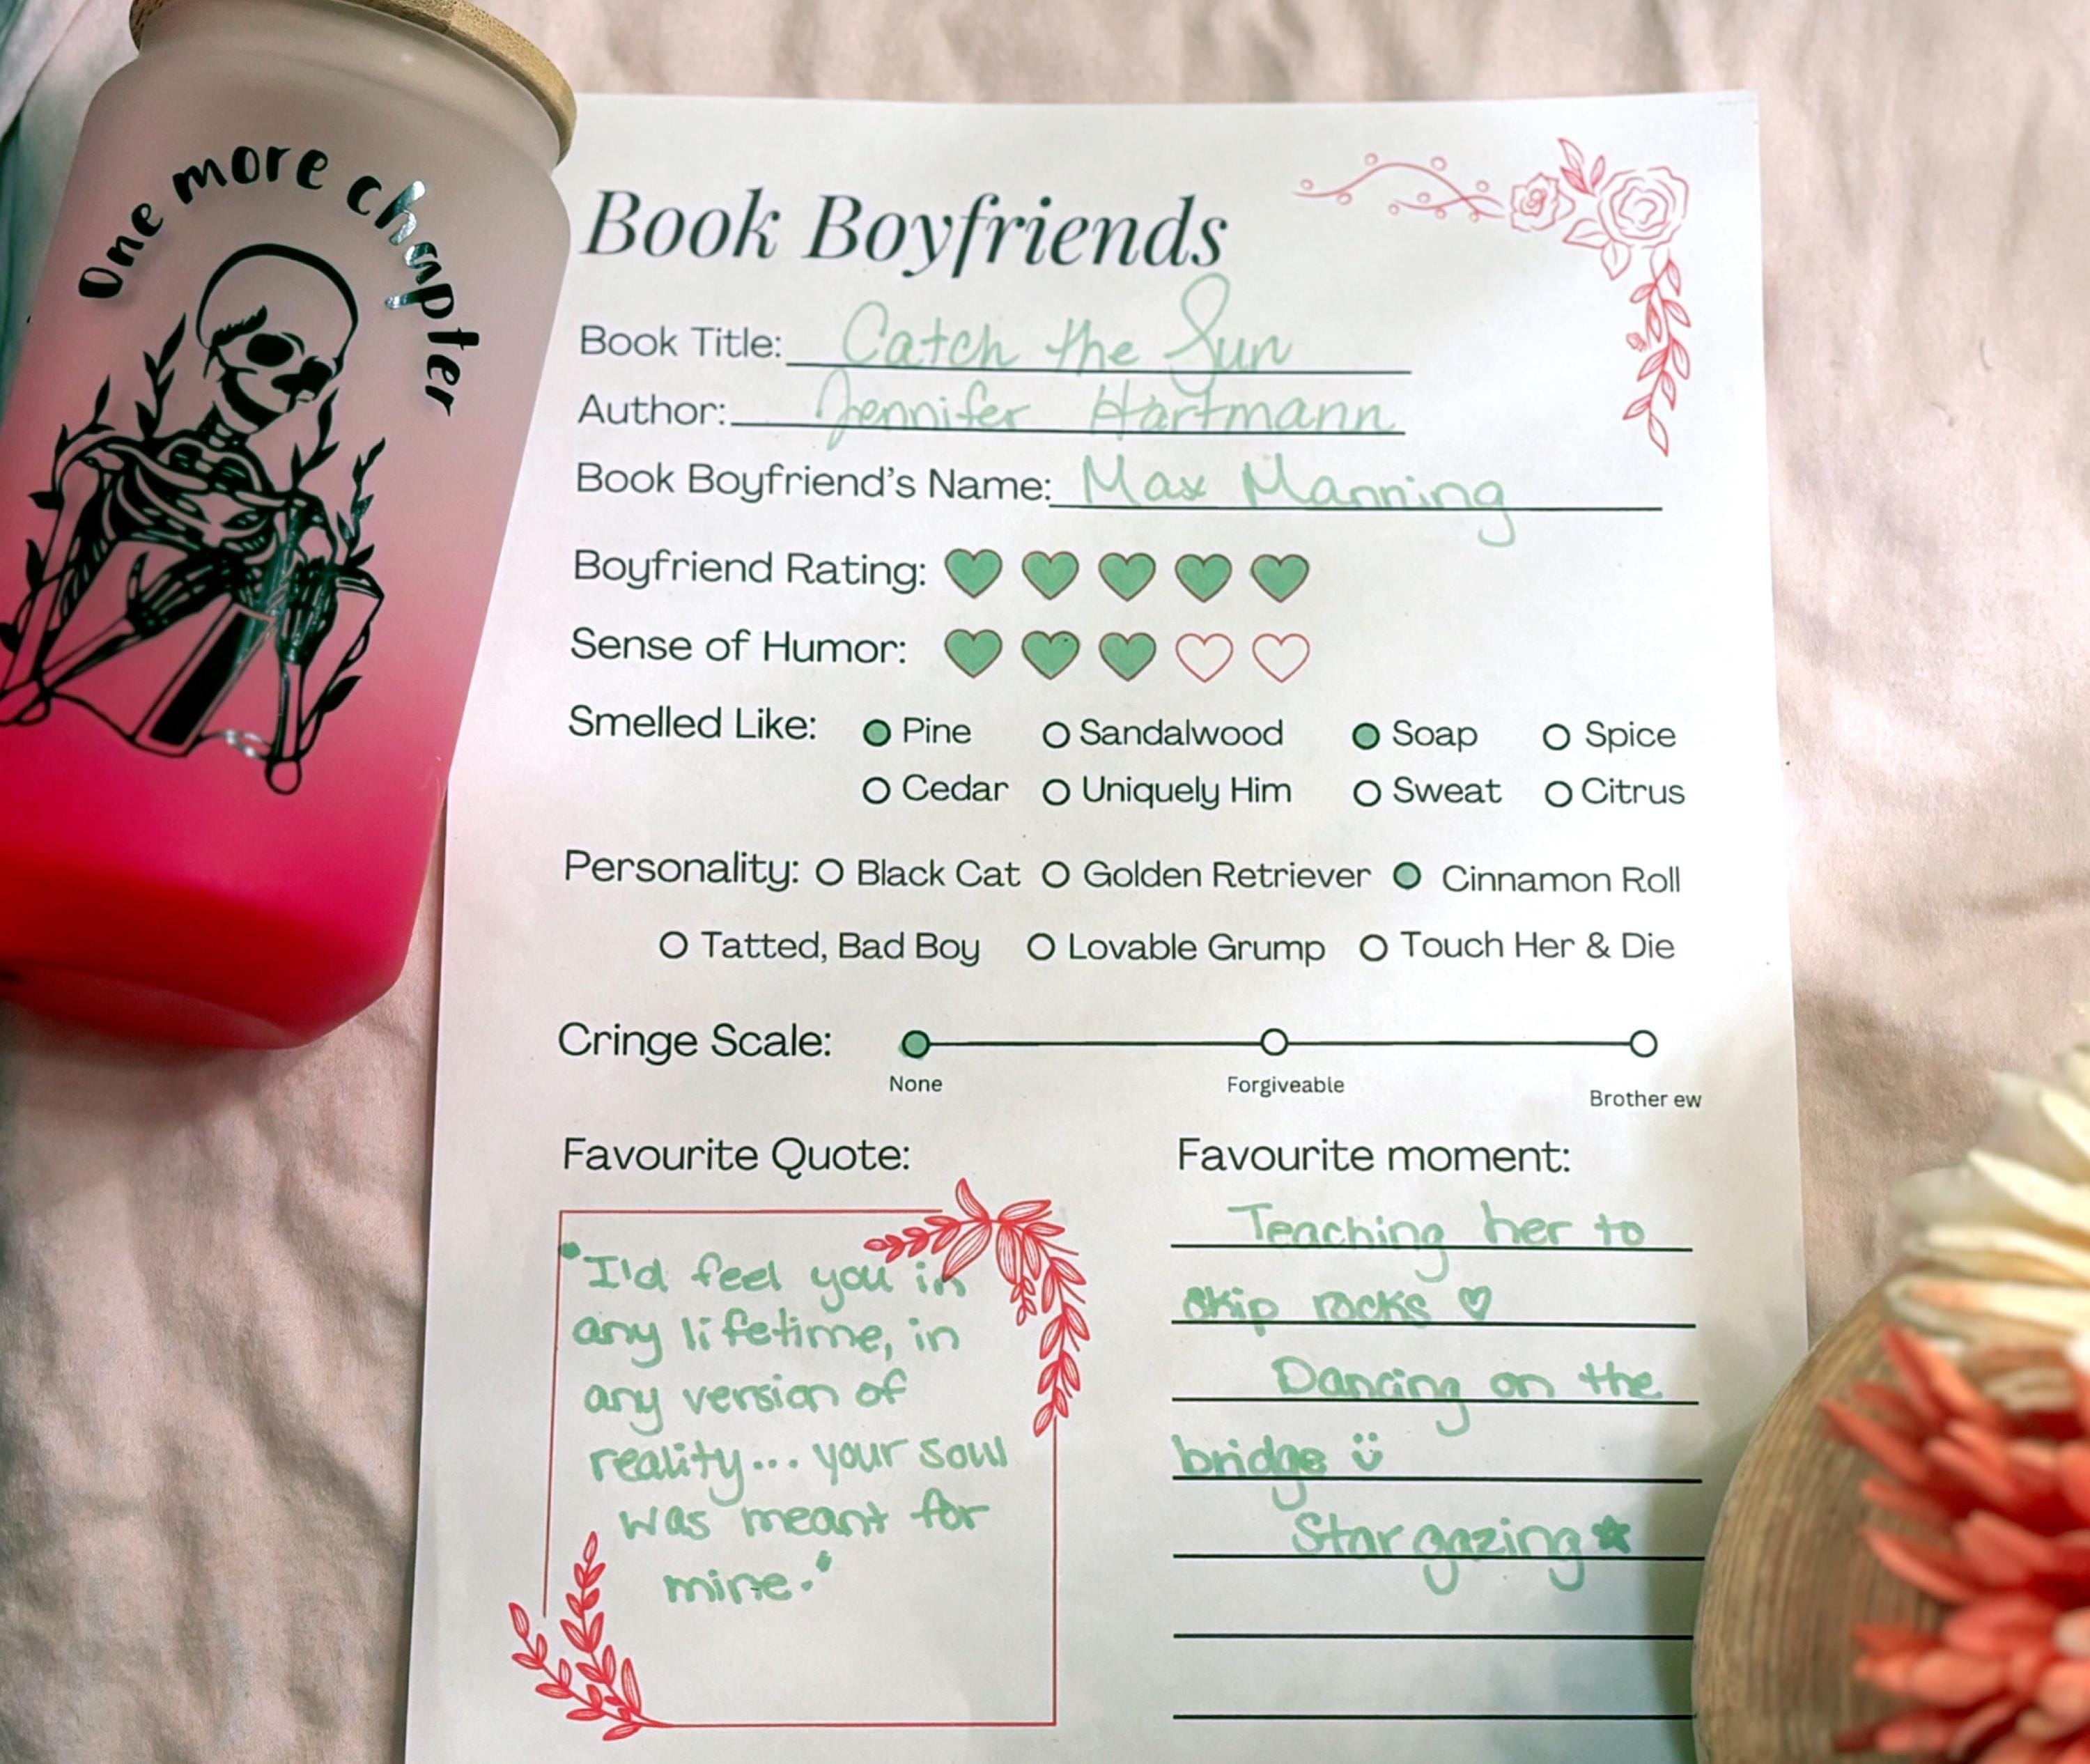 One more chapter
Book Boyfriends
Book Title: Catch the Sun
Author: Jennifer Hartmann
Book Boyfriend's Name: Max Manning
Boyfriend Rating:
Sense of Humor:
Smelled Like: Pine Sandalwood Soap Spice
Cedar Uniquely Him Sweat Citrus
Personality: Black Cat Golden Retriever Cinnamon Roll
Tatted, Bad Boy Lovable Grump Touch Her & Die
Cringe Scale:
None Forgiveable Brother ew
Favourite Quote:
"I'd feel you in
any lifetime, in
any version of
reality... your soul
was meant for
mine."
Favourite moment:
Teaching her to
skip rocks ♡
Dancing on the
bridge ü
Star gazing ★